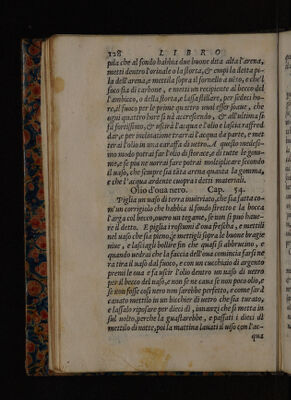 128 LIBRO
pila che al fondo habbia due buone dita alta l'arena,
metti dentro l'orinale o la storta, & empi la detta pi-
la dell'arena, e mettila sopra il fornello a uēto, e che'l
foco sia di carbone, e metti un recipiente al becco del
l'ambicco, o della storta, e lassa stillare, per sedeci ho-
re, al fuoco per le prime quattro uuol esser soaue, che
ogni quattro hore si uà accrescendo, & all'ultima se
fà fortissimo, & uscirà l'acqua e l'olio e lassala raffred
dar, e per inclinatione trarrai l'acqua da parte, e met-
terai l'olio in una caraffa di uetro. A questo medesi-
mo modo potrai far l'olio di storace, e di tutte le gom-
me, e se piu ne uorrai fare potrai moltiplicare secondo
il uaso, che sempre sia tāta arena quanta la gomma,
e che l'acqua ardente cuopra i detti materiali.
Olio d'oua nero. Cap. 54.
Piglia un uaso di terra inuitriato, che sia fatto co-
m'un coreggiolo che habbia il fondo stretto e la bocca
larga col becco, ouero un tegame, se non si può haue-
re il detto. E piglia i rossumi d'oua fresche, e mettili
nel uaso che sia pieno, e mettegli sopra le buone bragie
uiue, e lasciagli bollire fin che quasi si abbrucino, e
quando uedrai che la faccia dell'oua comincia farsi ne
ra tira il uaso dal fuoco, e con un cucchiaro di argento
premi le oua e fa uscir l'olio dentro un uaso di uetro
per il becco del uaso, e non se ne caua se non poco olio, e
se non fosse così nero non sarebbe perfetto, e come sarà
cauato mettilo in un bicchier di uetro che sia turato,
e lassalo riposare per dieci dì, innanzi che si metta in
sul uolto, perche la guastarebbe, e passati i dieci dì
mettilo di notte, poi la mattina lauati il uiso con l'ac-
qua